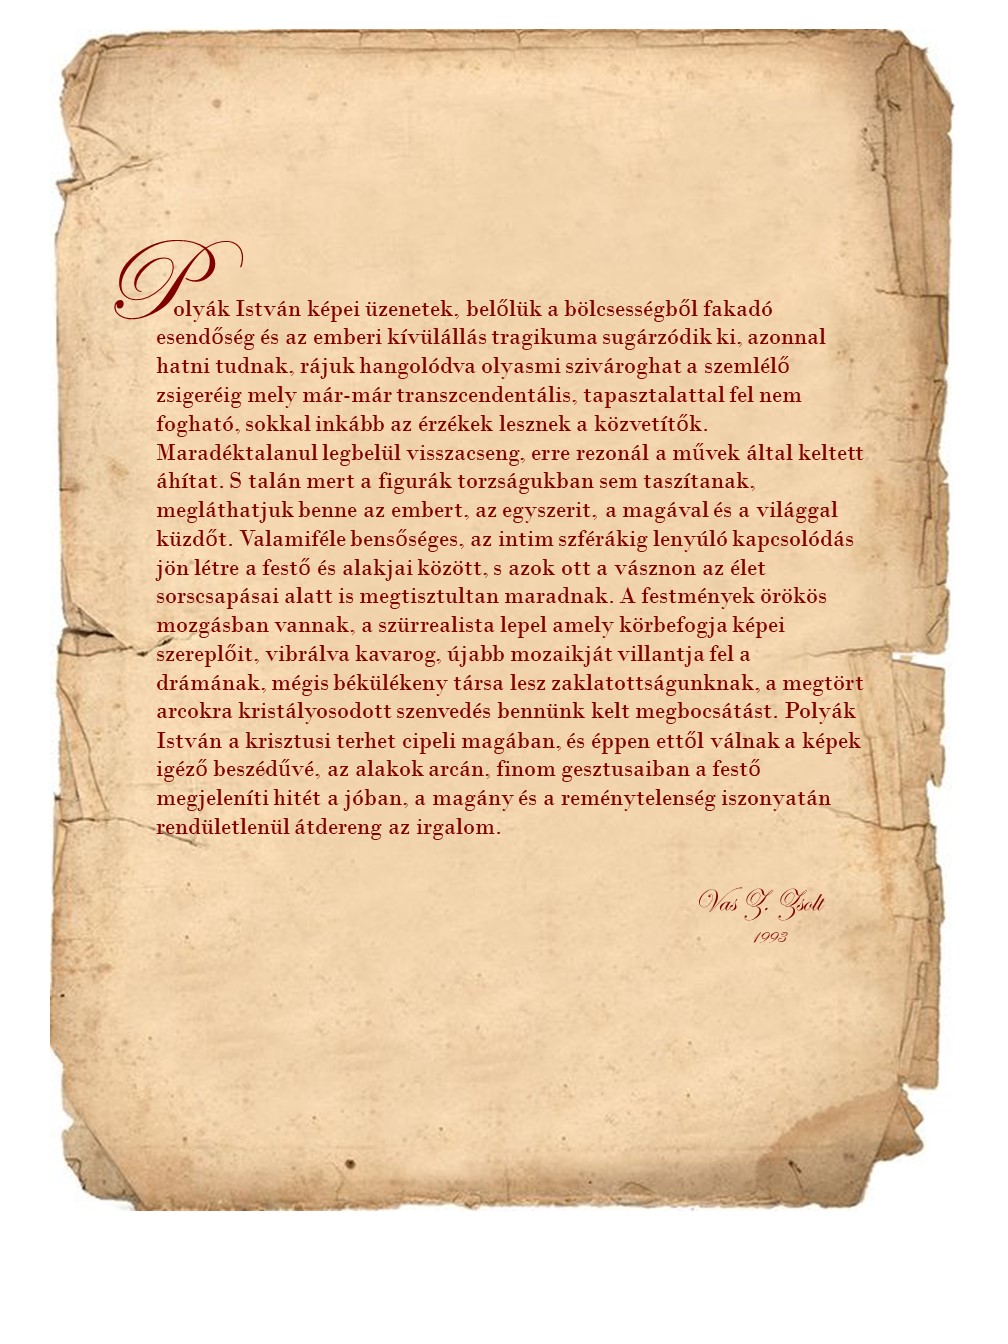 Polyák István képei üzenetek, belőlük a bölcsességből fakadó
esendőség és az emberi kívülállás tragikuma sugárzódik ki, azonnal
hatni tudnak, rájuk hangolódva olyasmi szivároghat a szemlélő
zsigeréig mely már-már transzcendentális, tapasztalattal fel nem
fogható, sokkal inkább az érzékek lesznek a közvetítők.
Maradéktalanul legbelül visszacseng, erre rezonál a művek által keltett
áhítat. S talán mert a figurák torzságukban sem taszítanak,
megláthatjuk benne az embert, az egyszerit, a magával és a világgal
küzdőt. Valamiféle bensőséges, az intim szférákig lenyúló kapcsolódás
jön létre a festő és alakjai között, s azok ott a vásznon az élet
sorscsapásai alatt is megtisztultan maradnak. A festmények örökös
mozgásban vannak, a szürrealista lepel amely körbefogja képei
szereplőit, vibrálva kavarog, újabb mozaikját villantja fel a
drámának, mégis békülékeny társa lesz zaklatottságunknak, a megtört
arcokra kristályosodott szenvedés bennünk kelt megbocsátást. Polyák
István a krisztusi terhet cipeli magában, és éppen ettől válnak a képek
igéző beszédűvé, az alakok arcán, finom gesztusaiban a festő
megjeleníti hitét a jóban, a magány és a reménytelenség iszonyatán
rendületlenül átdereng az irgalom.
Vas Z. Zsolt
1993